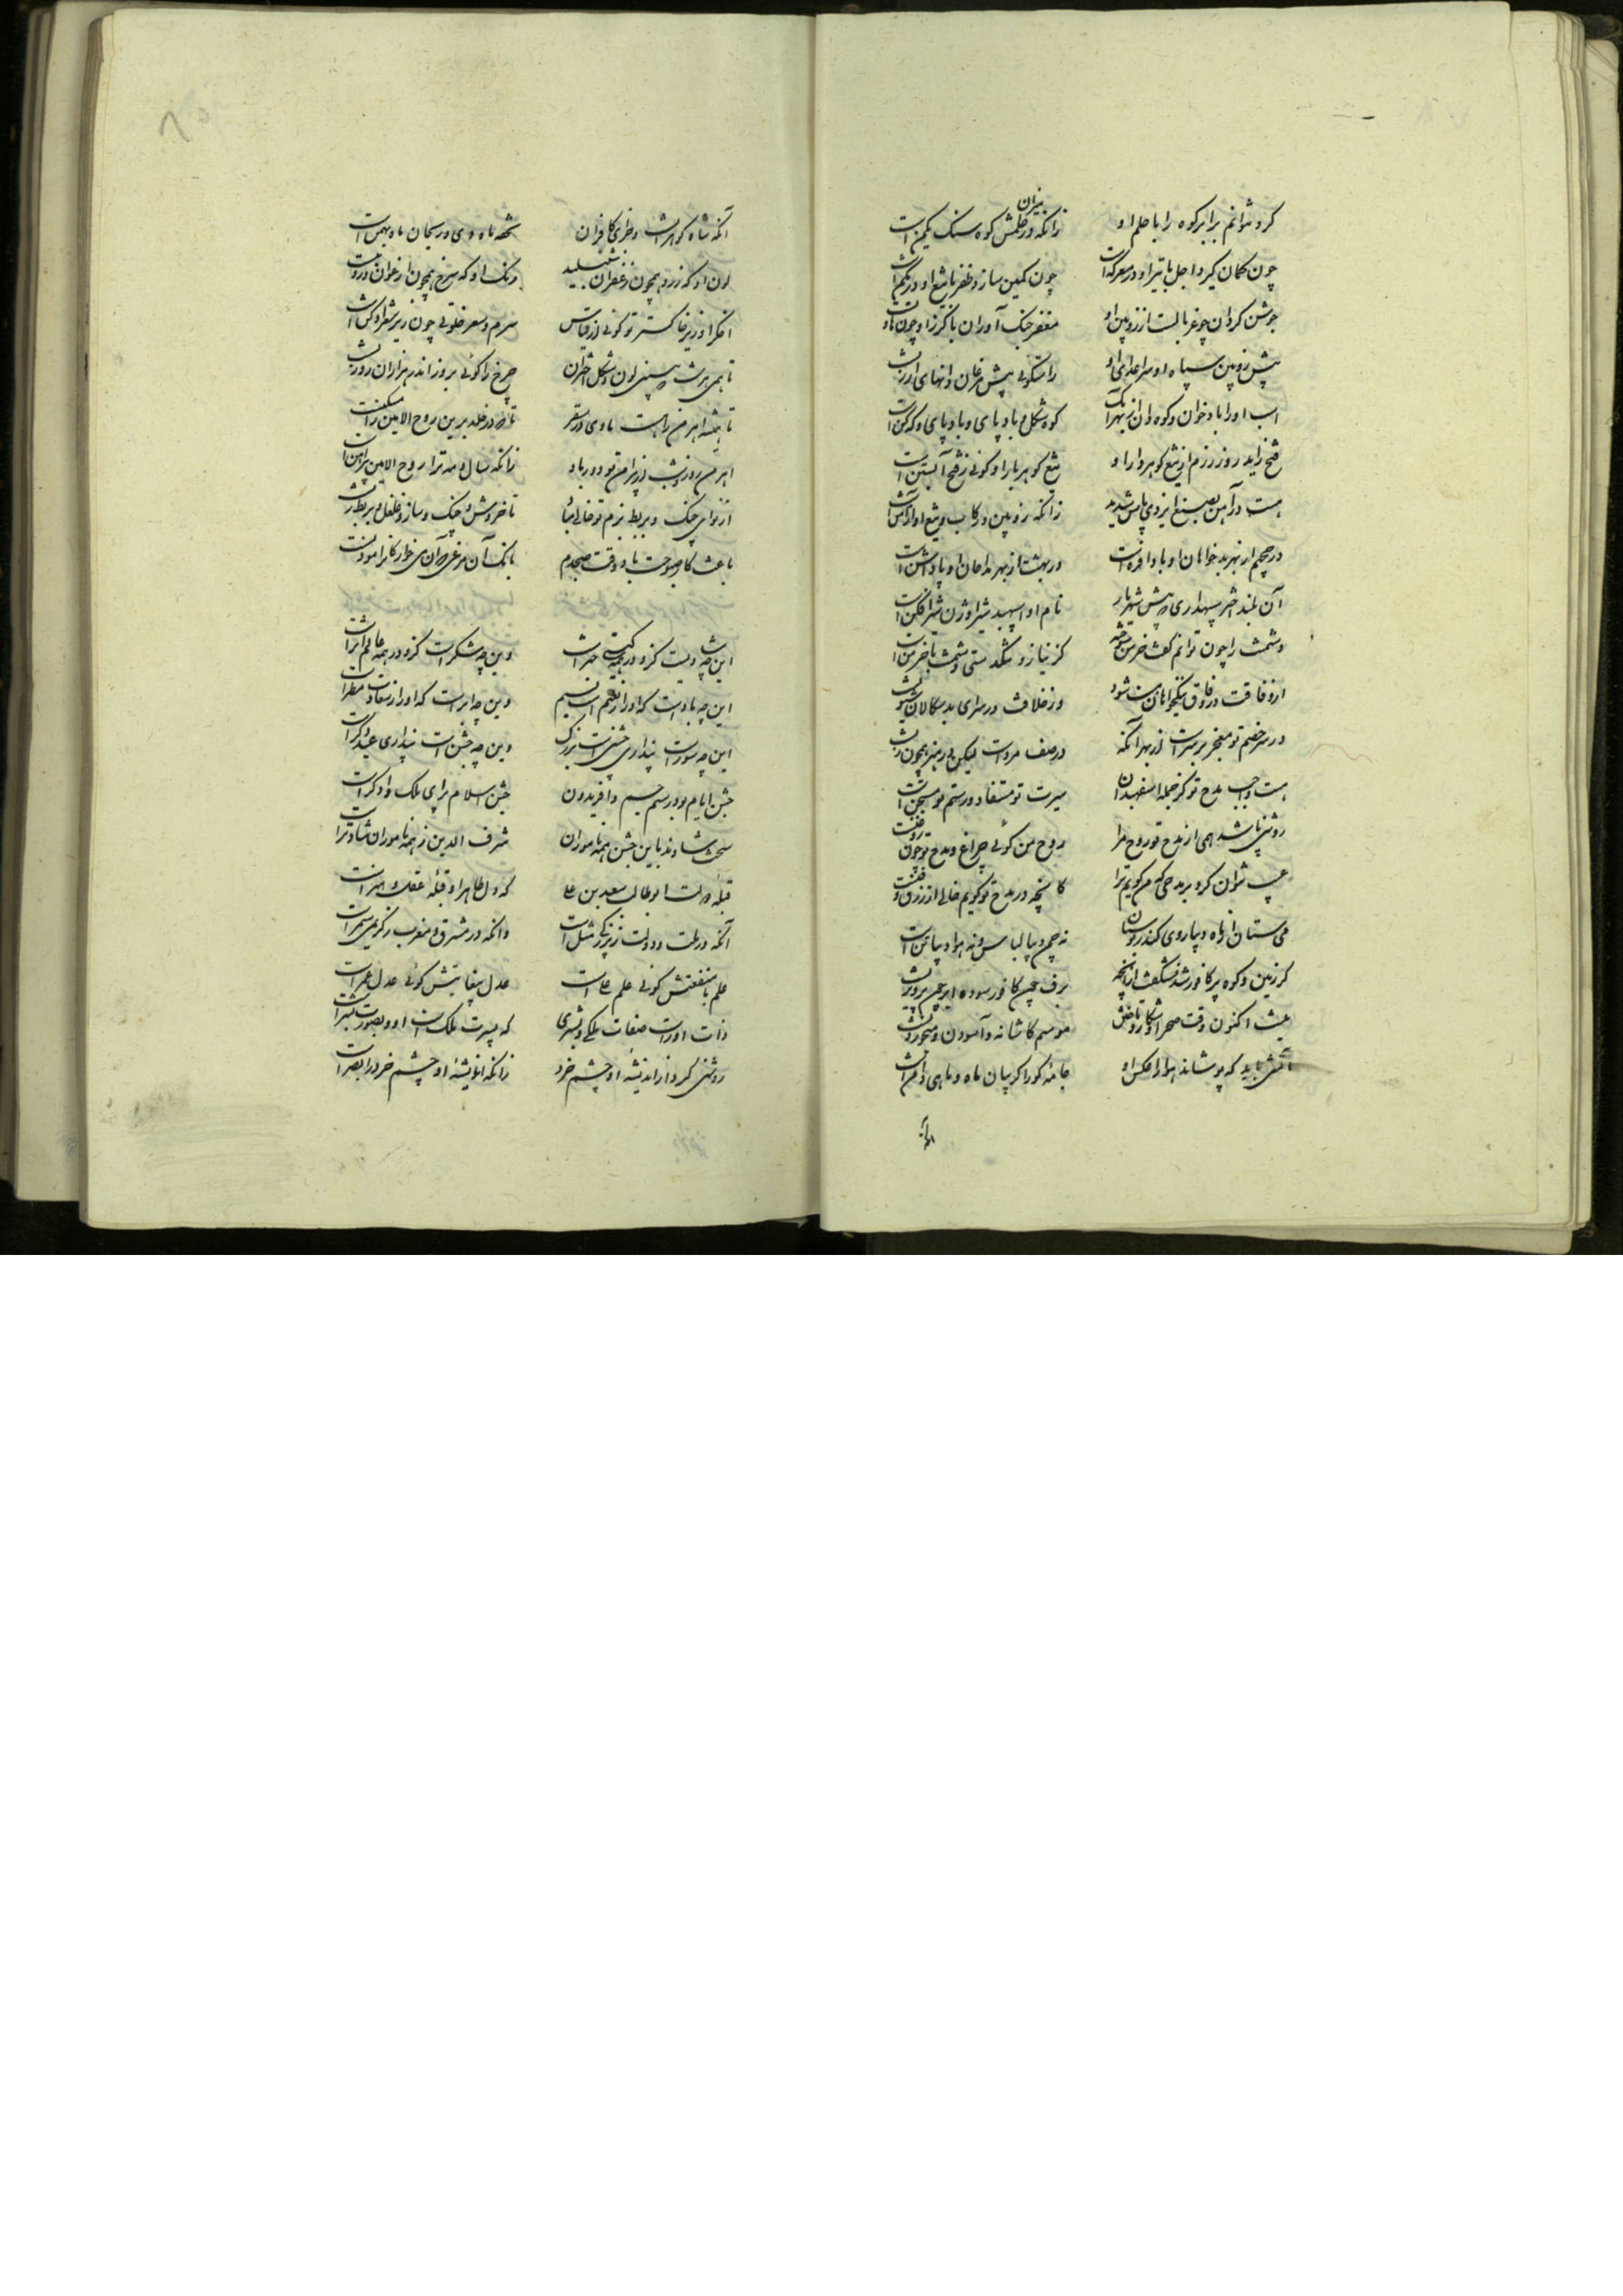 کرد نتوانم برابر کوه را با حلم او
زانکه در میزان حلمش کوه سنک یکمن است
چون کمان کیرد اجل با تیر او در معرکه است
چون کمین سازد ظفر با تیغ او در مکمن است
جوشن کردان چو غربالست از زوبین او
مغفر جنک آوران با کرز او چون هاونست
پیش زوبین سپاه او سر اعدای او
راست کوئی پیش مرغان دانهای ارزنست
اسب او را باد خوان و کوه دان زیرا که
کوه شکل و باد پای و باد پای و که کن است
فتح زاید روز رزم از تیغ کوهردار او
تیغ کوهربار او کوئی بفتح آبستن است
هست در آهن بصنع ایزدی باس شدید
زانکه زوبین و رکاب و تیغ او از آهن است
در جحیم از بهر بدخواهان او بادافره است
در بهشت از بهر مداحان او پاداشن است
آن بلند اختر سپهداری که پیش شهریار
نام او اسپهبد شیر اوژن شیر افکن است
دشمنت را چون توانم کفت خرمن سوخته
کز نیاز و تنکدستی دشمنت بی خرمن است
از وفاقت در وفاق نیکخواهان شود
وز خلافت در سرای بدسکالان شیونست
در سر خصم تو مغفر برسر است از بهر آنکه
در صف مردان لیکن بی هنر همچون زنست
هست واجب مدح تو کز جمله اسفهبدان
سیرت تو مستفاد و رسم تو مستحسن است
روشنی باشد همی از مدح تو روح مرا
روح من کوئی چراغ و مدح تو چون روغنست
عیب نتوان کرد بر مدحی که من کویم ترا
کانچه در مدح تو کویم خالی از زرق و فنست
می ستان از ماه دیباروی کاندر بوستان
نه چمن دیبا لباس و نه هوا دیبا تن است
کر زمین و کوه پر کافور شد نشکفت از آنچه
برف همچون کافور سوده ابر چون پرویزنست
نیست اکنون وقت صحرا و شکار و تاختن
موسم کاشانه و آسودن و می خوردنست
آتشی باید که پوشاند هوا را عکس او
جامه کو را کریبان ماه و ماهی دامن است
آنکه
آنکه شاه کوهر است و فخر آن کافران
تحفه ماه دی و ریحان ماه بهمن است
لون او که زرد همچون زعفران و شنبلید
رنک او که سرخ همچون ارغوان و روین است
اخکر او زیر خاکستر تو کوئی از قیاس
سرم و سعر خلوتی چون زیر شعر ادکن است
تا همی هر شب ببینی لون و شکل اختران
چرخ را کوئی بروز اندر هزاران روزنست
تا همیشه اهرمن را هست ماوی در سقر
تا که در خلد برین روح الامین را مسکنست
اهرمن روز و شب از پیرامن تو دور باد
زانکه سال و مه ترا روح الامین پیرامن است
از نوای چنک و بربط بزم تو خالی مباد
تا خروش و چنک و ساز و غلغل و بربط زنست
باعث کار صبوحت باد وقت صبحدم
بانک آن مرغی که آن می خوارکان را مؤذنست
این چه شادیست کزو در همه کیتی خبر است
وین چه شکر است کزو در همه عالم اثر است
این چه باد است که او را ز نعیم است نسیم
وین چه ابر است که او را ز سعادت مطر است
این چه سور است پنداری جشنی است بزرک
وین چه جشن است پنداری عید دکر است
جشن ایام بود رسم جم و افریدون
جشن اسلام برای ملک دادکر است
سخت شادند باین جشن همه ناموران
شرف الدین ز همه ناموران شادتر است
قبله دولت ابوطالب سعد بن علی
که دل طاهر او قبله عقل و هنر است
آنکه در ملت و دولت بزیرکی مثل است
وانکه در مشرق و مغرب بکریمی سمر است
علم با منفعتش کوئی علم علی است
عدل بیغایتش کوئی عدل عمر است
ذات او راست صفات ملکی و بشری
که بسیرت ملک است او و بصورت بشر است
روشنی کیرد از اندیشه او چشم خرد
زانکه اندیشه او چشم خرد را بصر است